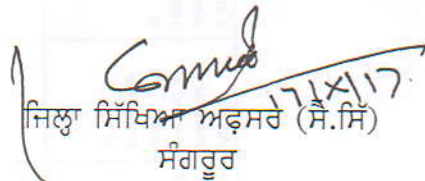 17/X/17
ਜਿਲ੍ਹਾ ਸਿੱਖਿਆ ਅਫ਼ਸਰ (ਸੈ.ਸਿੱ)
ਸੰਗਰੂਰ